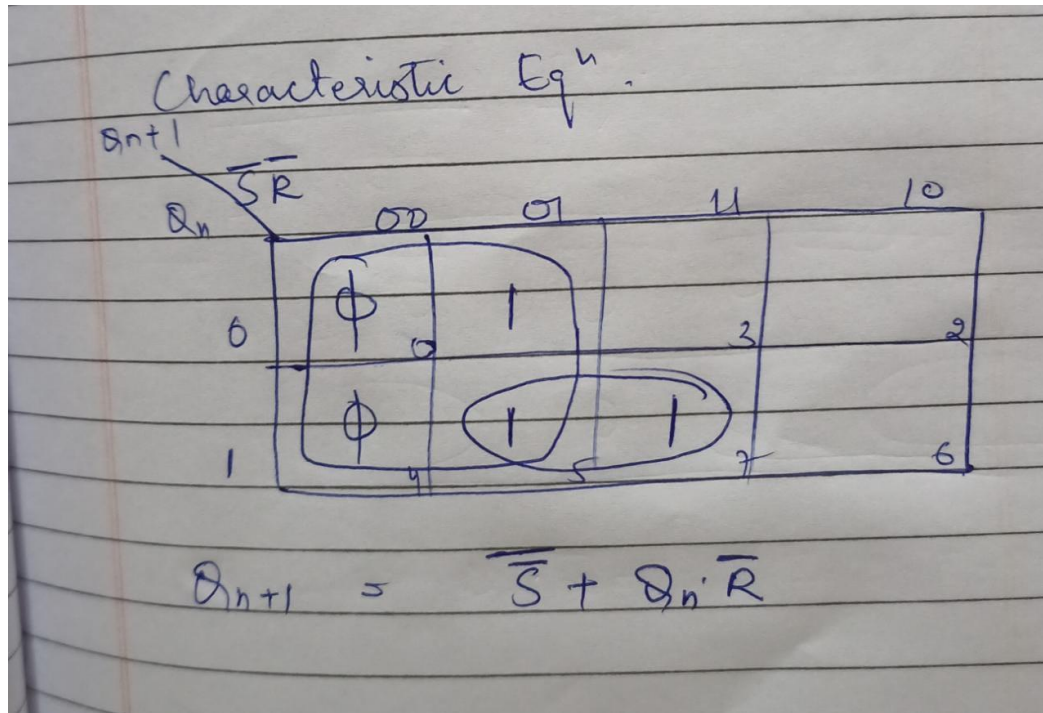 Characteristic Eqⁿ.
Qn+1
S̅ R̅
Qn 00 01 11 10
0 ϕ 0 1 3 2
1 ϕ 4 1 5 1 7 6
Qn+1 = S̅̅ + Qn·R̅